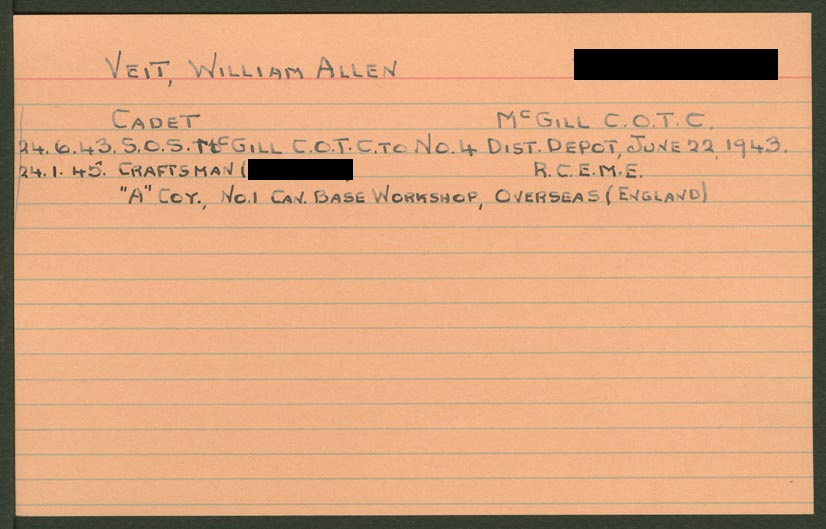 VEIT, WILLIAM ALLEN
CADET McGILL C.O.T.C.
24.6.43. S.O.S. McGILL C.O.T.C. TO No. 4 DIST. DEPOT, JUNE 22, 1943.
24.1.45. CRAFTSMAN ( R.C.E.M.E.
"A" COY., No.1 CAN. BASE WORKSHOP, OVERSEAS (ENGLAND)